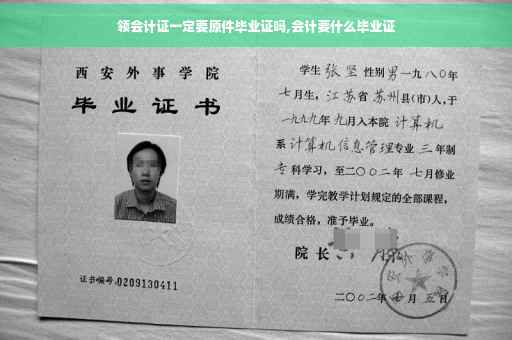 领会计证一定要原件毕业证吗,会计要什么毕业证
西安外事学院
毕业证书
证书编号:0209130411
学生 张坚 性别男一九八〇年
七月生，江苏省苏州县(市)人,于
一九九九年九月入本院 计算机
系计算机信息管理专业三年制
专科学习，至二〇〇二年七月修业
期满，学完教学计划规定的全部课程，
成绩合格，准予毕业。
院长
二〇〇二年 月五日